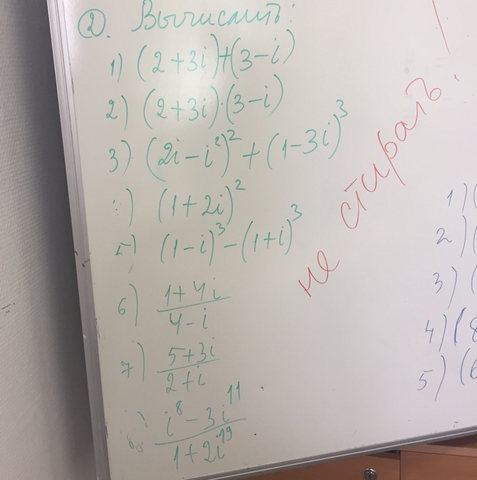 2. Вычислить:
1) (2+3i)+(3-i)
2) (2+3i)·(3-i)
3) (2i-i²)²+(1-3i)³
:) (1+2i)²
5) (1-i)³-(1+i)³
6) 1+4i
4-i
7) 5+3i
2+i
i⁸-3i¹¹
1+2i¹⁹
не стирать.
1) (
2) (
3) (
4) (8
5) (6